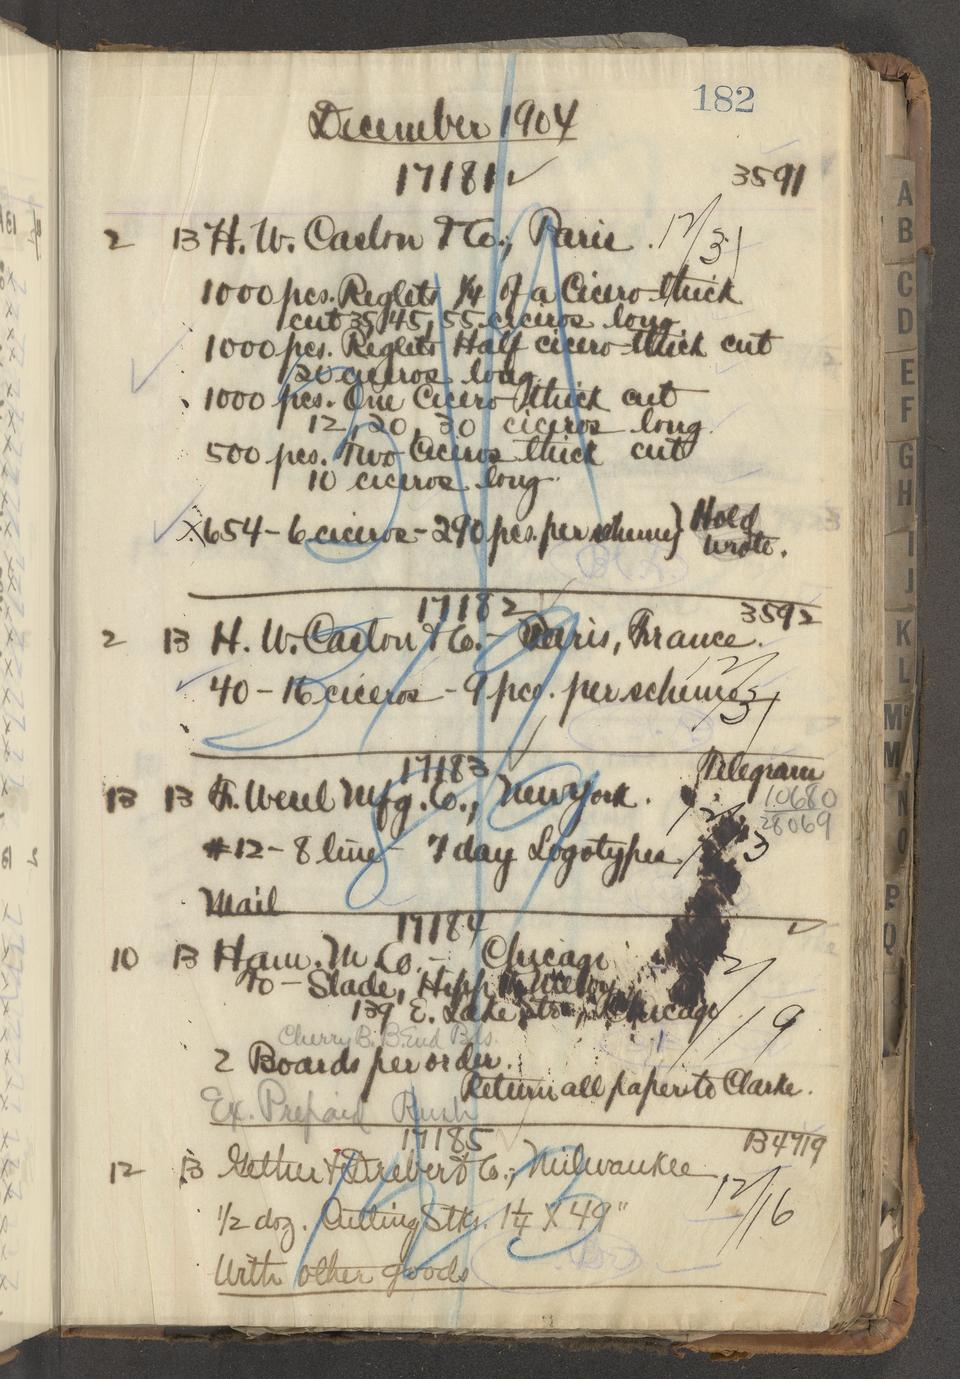 182
December 1904
17181 ✓ 3591
2 13 H. W. Caslon & Co., Paris. 12/31
1000 pcs. Reglets 1/4 of a Cicero thick
cut 35, 45, 55 ciceros long
1000 pcs. Reglets Half cicero thick cut
120 ciceros long
1000 pcs. One Cicero thick cut
12, 20, 30 ciceros long.
500 pcs. Two Ciceros thick cut
10 ciceros long.
X 654 - 6 ciceros - 290 pcs. per scheme} Hold
wrote.
17182 3592
2 13 H. W. Caslon & Co. - Paris, France.
12/31
40 - 16 ciceros - 9 pcs. per scheme
17183 Telegram
13 13 F. Wesel Mfg. Co., New York. 10680
28069
#12 - 8 line - 7 day Logotypes 12/3
Mail
17184 ✓
10 13 Ham. M Co. - Chicago
To - Slade, Hipp &
139 E. Lake Str., Chicago 12/19
Cherry B. B. End Bds.
2 Boards per order.
Return all paper to Clarke.
Ex. Prepaid Rush
17185 B4719
12 13 & Co., Milwaukee 12/16
1/2 doz. Cutting Stks. 1 1/4 X 49"
With other goods
A
B
C
D
E
F
G
H
I
J
K
L
M
M
N
O
P
Q